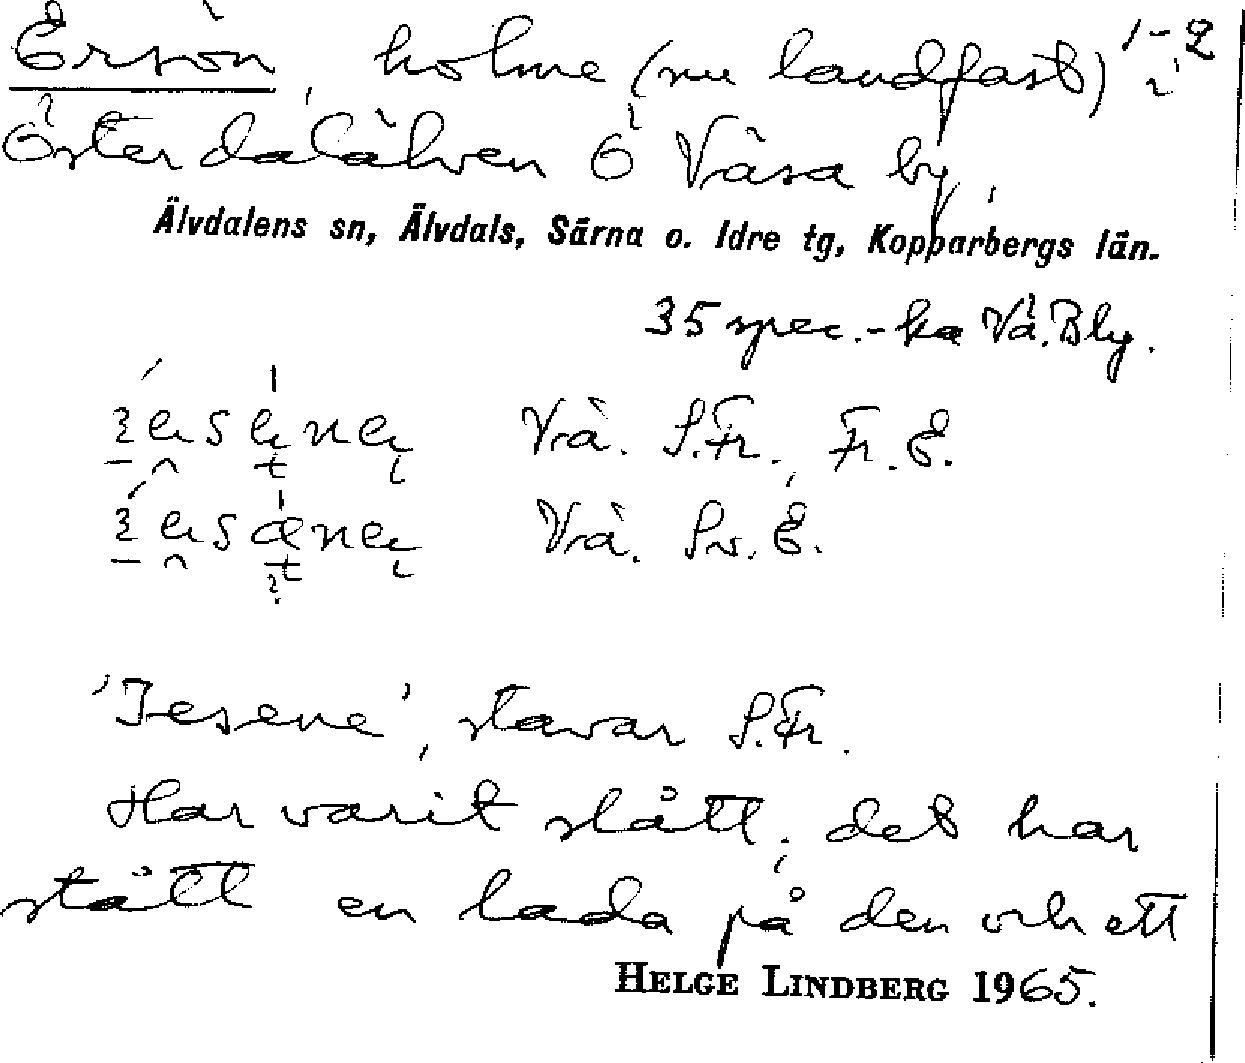 Ersön, holme (nu landfast) i 1-2
Österdalälven Ö Våsa by,
Älvdalens sn, Älvdals, Särna o. Idre tg, Kopparbergs län.
35 spec.-ka Vå. Bly.
Vrå. S.Fr., Fr. E.
Vrå. Sv. E.
'Iesene', stavar S.Fr.
Har varit slått, det har
stått en lada på den och ett
HELGE LINDBERG 1965.